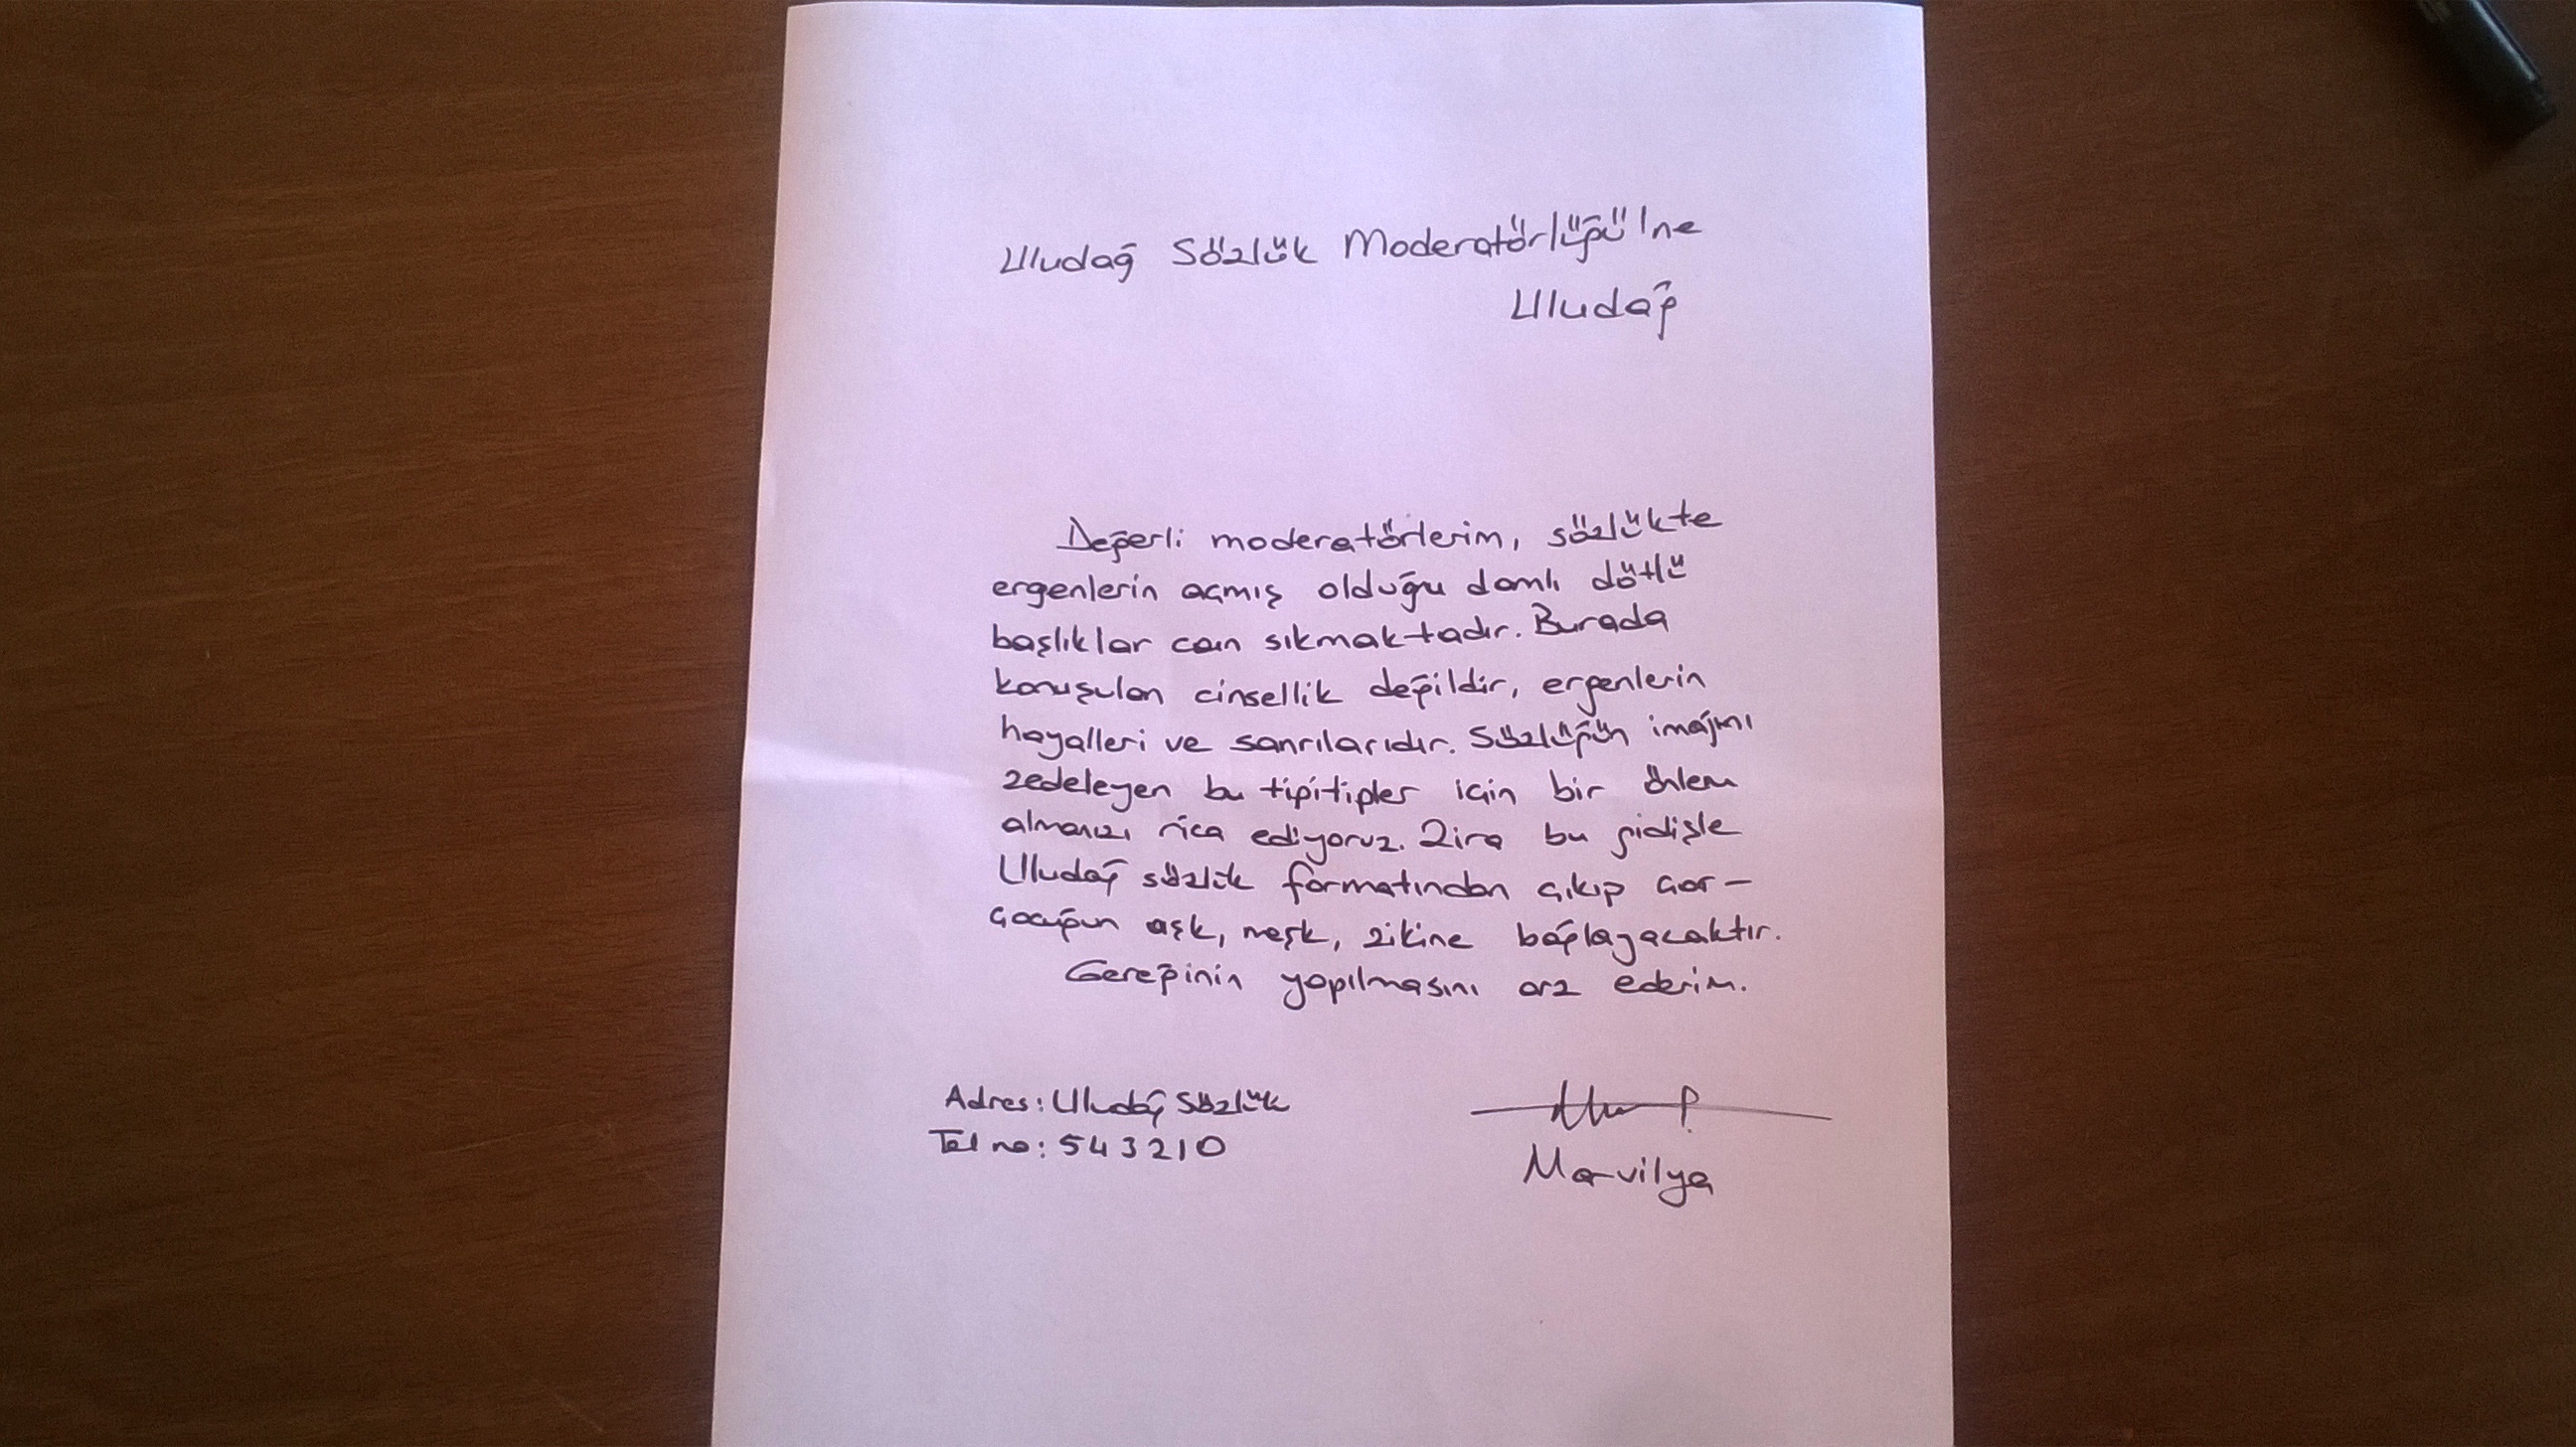 Uludağ Sözlük Moderatörlüğü'ne
Uludağ
Değerli moderatörlerim, sözlükte
ergenlerin açmış olduğu damlı dötlü
başlıklar can sıkmaktadır. Burada
konuşulan cinsellik değildir, ergenlerin
hayalleri ve sanrılarıdır. Sözlüğün imajını
zedeleyen bu tipitipler için bir önlem
almanızı rica ediyoruz. Zira bu gidişle
Uludağ sözlük formatından çıkıp çor-
çocuğun aşk, meşk, zikine bağlayacaktır.
Gereğinin yapılmasını arz ederim.
Adres: Uludağ Sözlük
Tel no: 543210
Marvilya